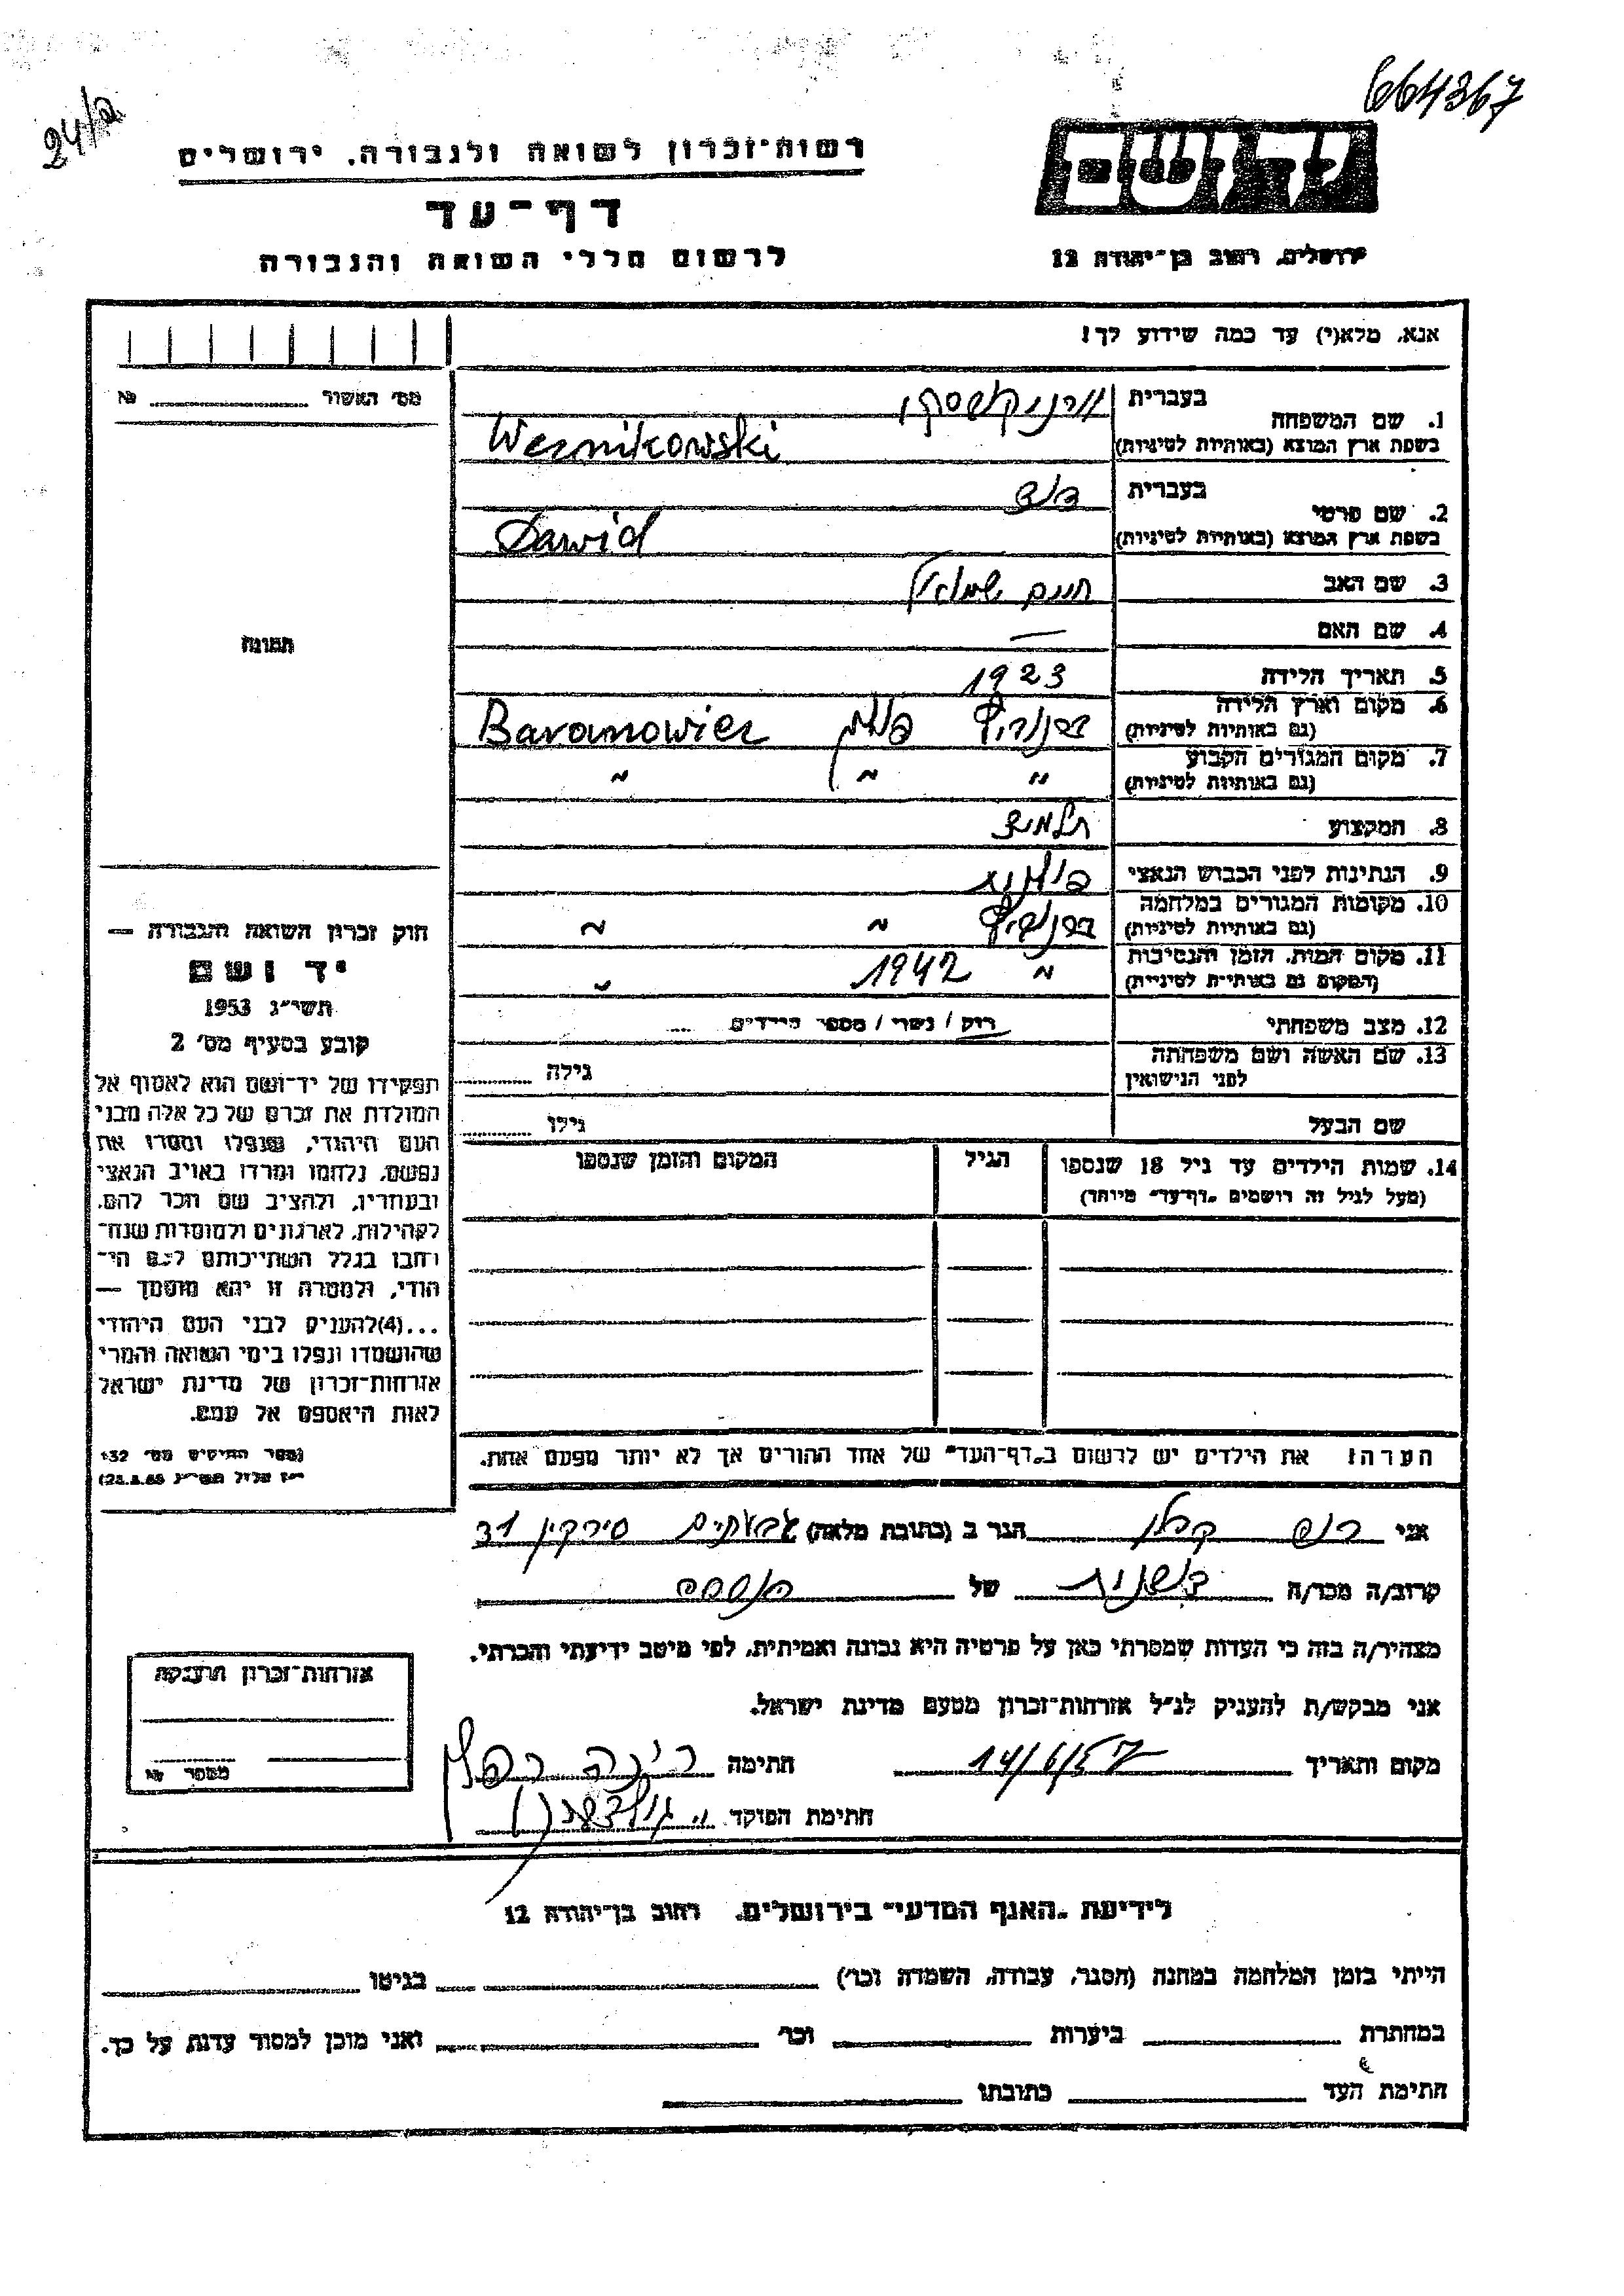 664367
24/a
יד ושם
רשות־זכרון לשואה ולגבורה, ירושלים
דף־עד
לרשום חללי השואה והגבורה
ירושלים, רחוב בן־יהודה 12
אנא, מלא(י) עד כמה שידוע לך!
מס׳ האשור № 
1. שם המשפחה
בעברית ורניקובסקי
בשפת ארץ המוצא (באותיות לטיניות) Wernikowski
2. שם פרטי
בעברית דוד
בשפת ארץ המוצא (באותיות לטיניות) Dawid
3. שם האב חיים שמואל
4. שם האם —
5. תאריך הלידה 1923
6. מקום וארץ הלידה
(גם באותיות לטיניות) ברנוביץ פולין Baranowicz
7. מקום המגורים הקבוע
(גם באותיות לטיניות) " " "
8. המקצוע תלמיד
9. הנתינות לפני הכבוש הנאצי פולנית
10. מקומות המגורים במלחמה
(גם באותיות לטיניות) ברנוביץ " "
11. מקום המות, הזמן והנסיבות
(המקום גם באותיות לטיניות) " 1942 "
12. מצב משפחתי רוק / נשוי / מספר הילדים
13. שם האשה ושם משפחתה
לפני הנישואין גילה
שם הבעל גילו
14. שמות הילדים עד גיל 18 שנספו הגיל המקום והזמן שנספו
(מעל לגיל זה רושמים „דף־עד״ מיוחד)
הערה: את הילדים יש לרשום ב„דף־העד״ של אחד ההורים אך לא יותר מפעם אחת.
תמונה
חוק זכרון השואה והגבורה —
יד ושם
תשי״ג 1953
קובע בסעיף מס׳ 2
תפקידו של יד־ושם הוא לאסוף אל
המולדת את זכרם של כל אלה מבני
העם היהודי, שנפלו ומסרו את
נפשם, נלחמו ומרדו באויב הנאצי
ובעוזריו, ולהציב שם וזכר להם,
לקהילות, לארגונים ולמוסדות שנח־
רבו בגלל השתייכותם לעם הי־
הודי, ולמטרה זו יהא מוסמך —
...(4)להעניק לבני העם היהודי
שהושמדו ונפלו בימי השואה והמרי
אזרחות־זכרון של מדינת ישראל
לאות היאספם אל עמם.
(ספר החוקים מס׳ 132
אני קפלן הגר ב (כתובת מלאה) גבעתים סירקין 31
קרוב/ה מכר/ה של
מצהיר/ה בזה כי העדות שמסרתי כאן על פרטיה היא נכונה ואמיתית, לפי מיטב ידיעתי והכרתי.
אני מבקש/ת להעניק לנ״ל אזרחות־זכרון מטעם מדינת ישראל.
מקום ותאריך 14/6/57 חתימה
חתימת הפוקד
אזרחות־זכרון הוענקה
מספר №
לידיעת „האגף המדעי״ בירושלים, רחוב בן־יהודה 12
הייתי בזמן המלחמה במחנה (הסגר, עבודה, השמדה וכו׳) בגיטו
במחתרת ביערות וכו׳ ואני מוכן למסור עדות על כך.
חתימת העד כתובתו